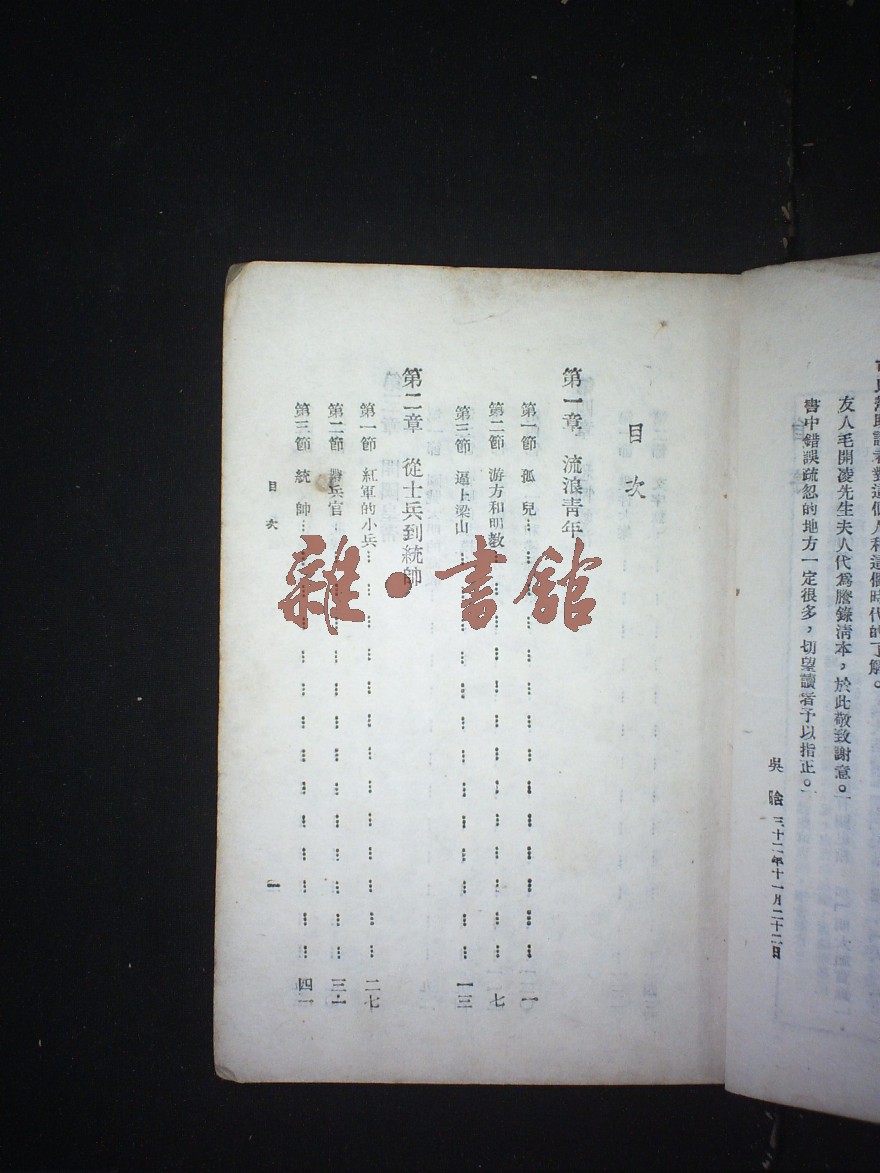 書中錯誤疏忽的地方一定很多，切望讀者予以指正。
友人毛開凌先生夫人代為謄錄清本，於此敬致謝意。
吳晗 三十二年十一月二十二日
目次
第一章 流浪青年
第一節 孤兒… … … … … … … … … … 一
第二節 游方和明教… … … … … … … … … 七
第三節 逼上梁山… … … … … … … … … 一三
第二章 從士兵到統帥
第一節 紅軍的小兵… … … … … … … … … 二七
第二節 將兵官… … … … … … … … … 三一
第三節 統帥… … … … … … … … … … 四一
目次
一
雜·書館